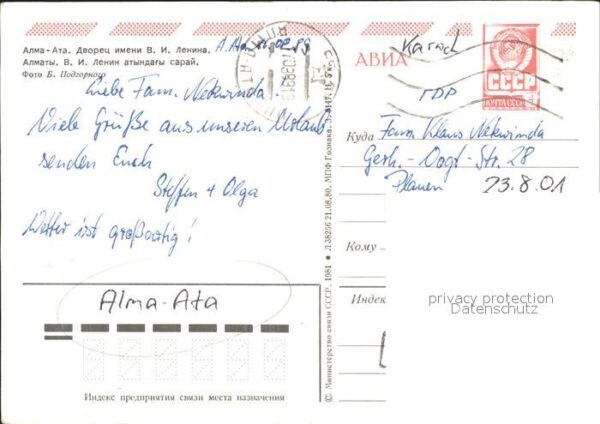 Алма-Ата. Дворец имени В. И. Ленина.
Алматы. В. И. Ленин атындағы сарай.
Фото Б. Подгорного
Liebe Fam. Nekwinda
Viele Grüße aus unserem Urlaub
senden Euch
Steffen + Olga
Wetter ist großartig!
Alma-Ata
Индекс предприятия связи места назначения
© Министерство связи СССР, 1981 • Л 38256 21.08.80. МПФ Гознака.
АВИА
СССР
ПОЧТА СССР
GDP
Куда Fam. Klaus Nekwinda
Gerh.-Vogt-Str. 28
Plauen 23.8.01
Кому
Индекс
privacy protection
Datenschutz